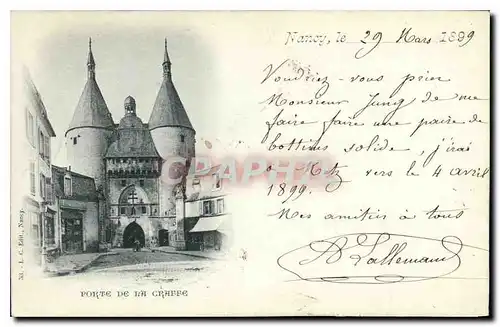 Nancy, le 29 Mars 1899
Voudriez-vous prier
Monsieur Jung de me
faire faire une paire de
bottines solide, j'irai
a Metz vers le 4 avril
1899.
Mes amitiés à tous
A Lallemand
CPARAMA
53. - I. C. Edit., Nancy
PORTE DE LA CRAFFE